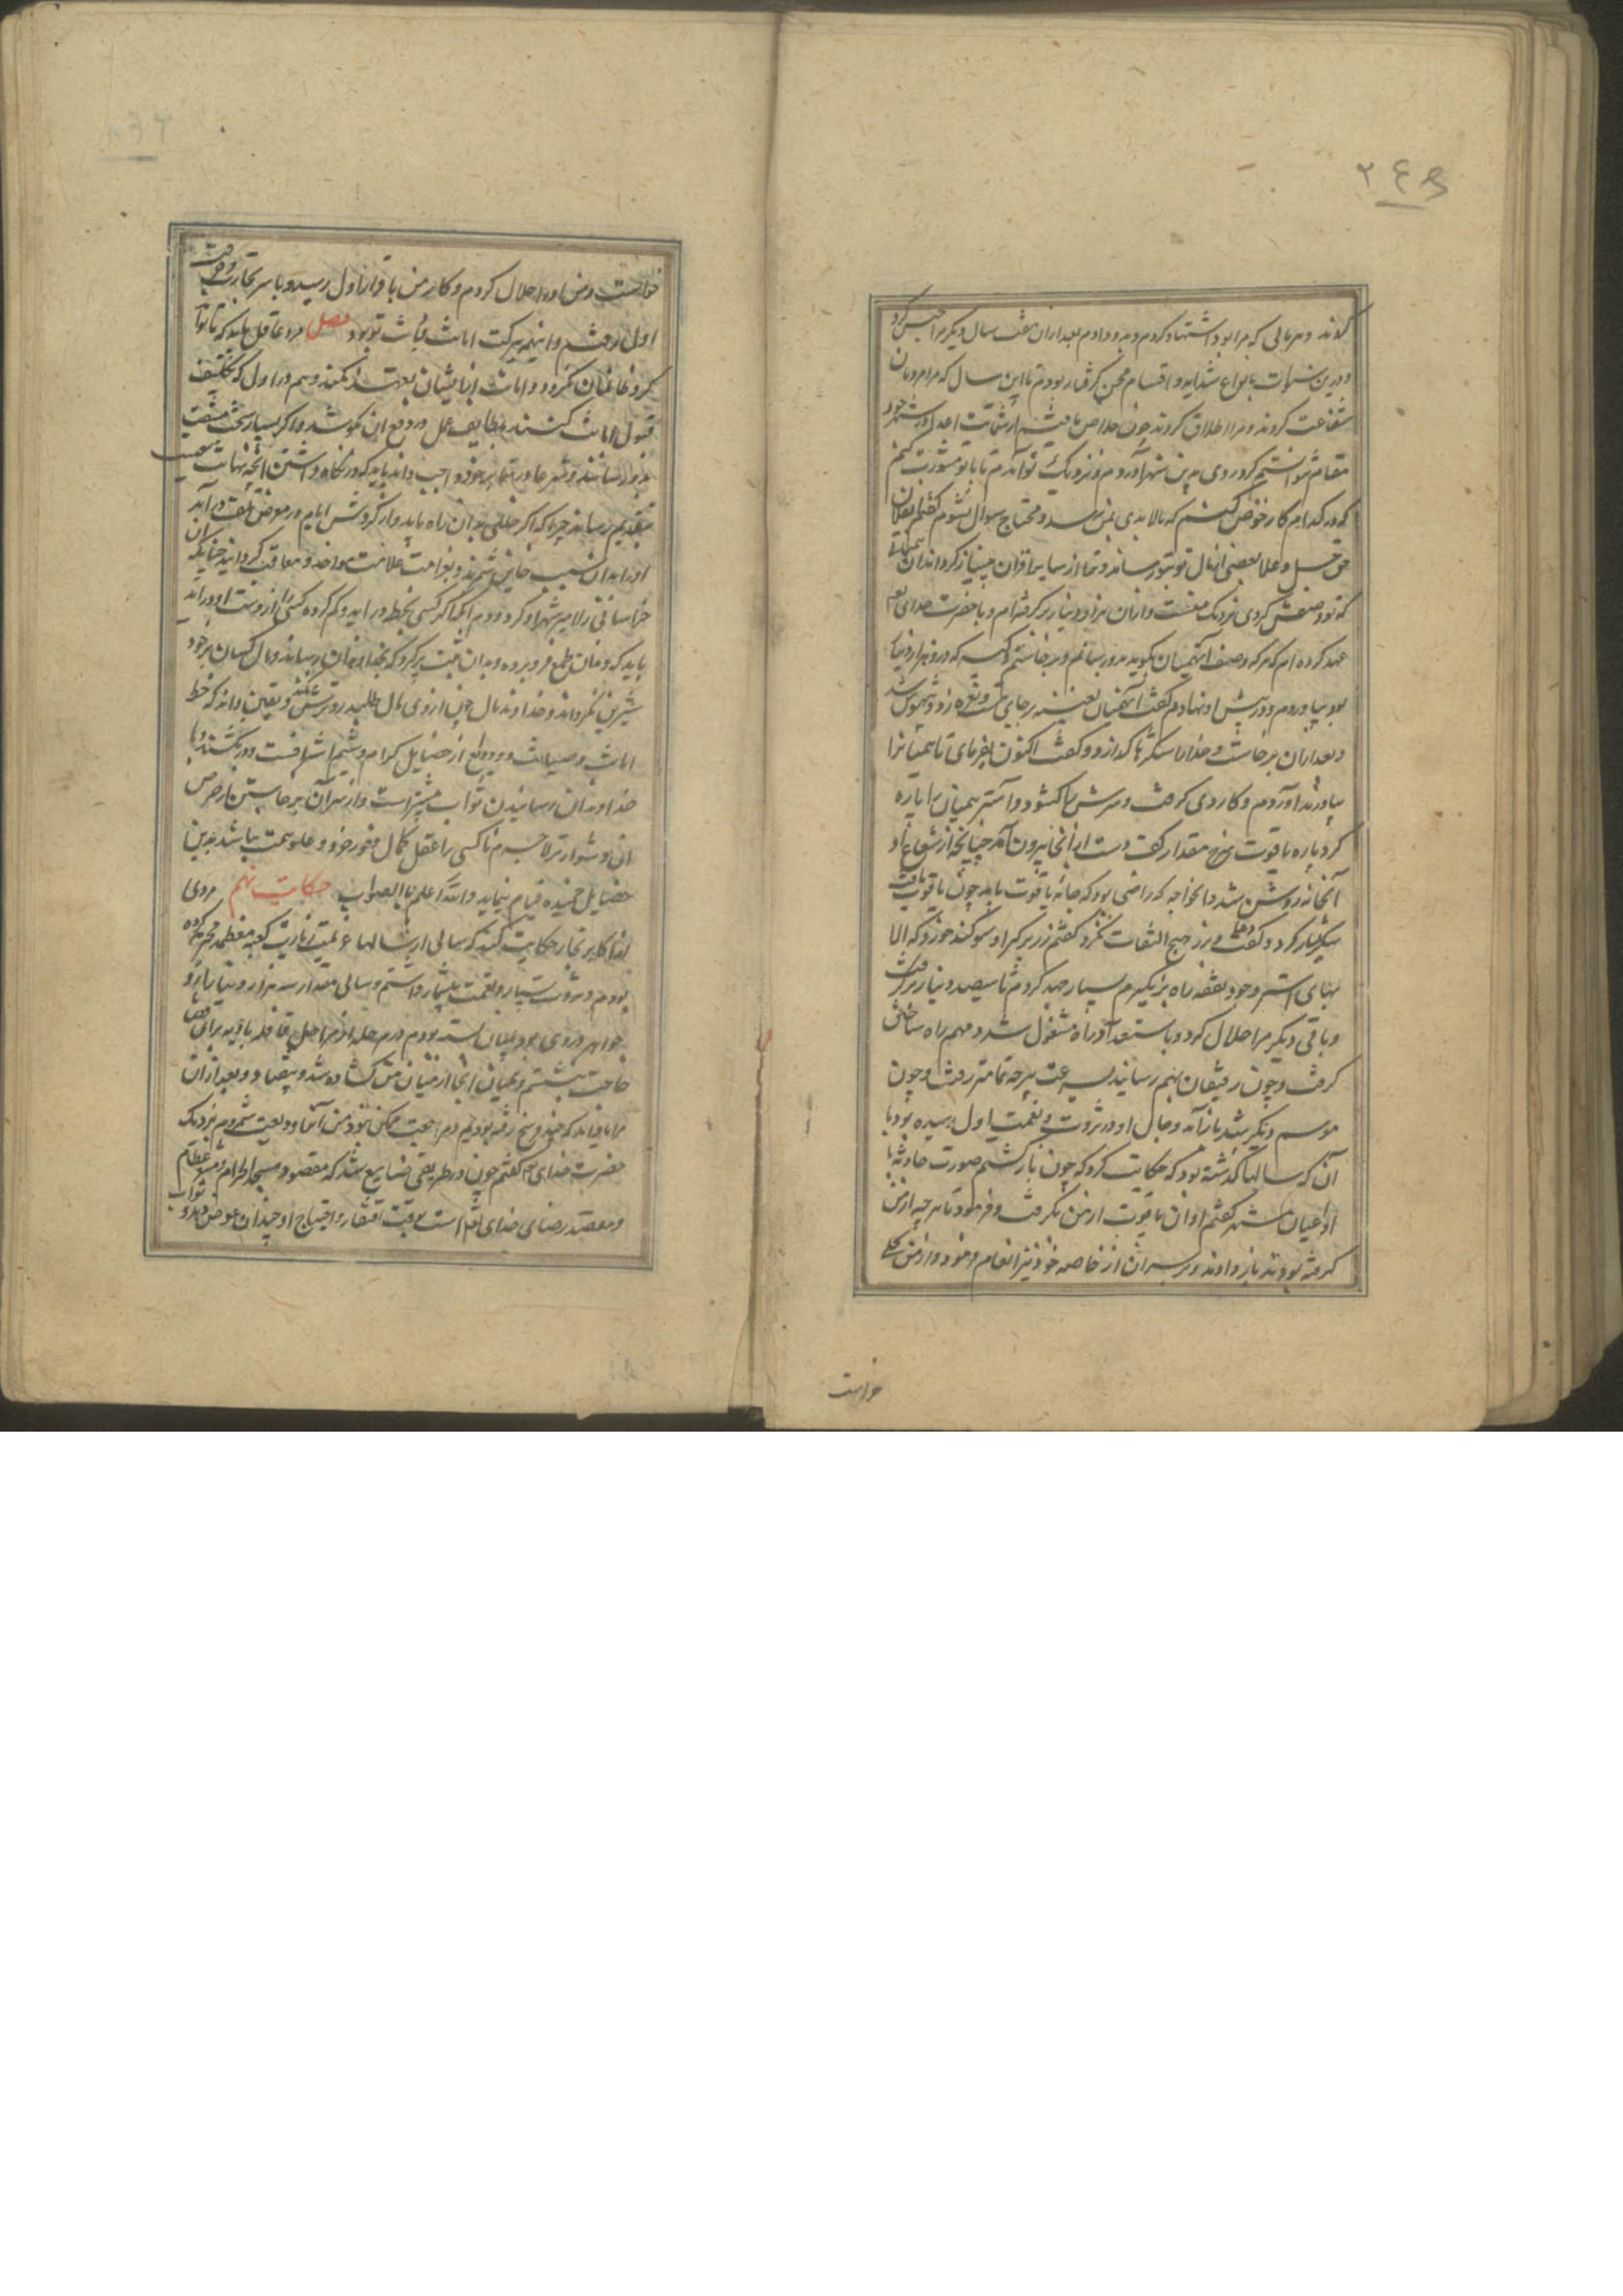 ۲۶۹
کردند و هر مالی که مرا بود استشهاد کردم و بدو دادم بعد از ان هفت سال دیگر مرا حبس کرد
و درین سنوات بانواع شداید و اقسام محن گرفتار بودم تا این سال که مرا مردمان
شفاعت کردند و مرا اطلاق کردند چون خلاص یافتم از شماتت اعدا در شهر خود
مقام نتوانستم کرد روی بدین شهر آوردم و نزدیک تو آمدم تا با تو مشورت کنم
که در کدام کار خوض کنم که مالابدی بمن رسد و محتاج سوال نشوم گفتم
حق جل و علا بعضی از مال تو بتو رساند و ترا از سایر اقران بی نیاز گرداند آن همیانی
که تو وصفش کردی نزدیک منست و از آن هزار دینار بر گرفته ام و با حضرت خدای
عهد کرده ام که هر که وصف آن همیان بگوید بدو رسانم و برخاستم و کیسه که درو هزار دینار
بود بیاوردم و در پیش او نهادم گفت آن همیان بعینه بر جای است و نعره زد و بیهوش شد
و بعد از ان برخاست و خدا را شکرها گذارد و گفت اکنون بفرمای تا همیان را
بیاورند آوردم و کاردی خواست و سرش بگشود و آستر همیان را پاره
کرد پاره یاقوت سرخ مقدار کف دست از آنجا بیرون آمد چنانچه از شعاع او
آن خانه روشن شد و آن خواجه که راضی بود که جانه یاقوت یابد چون یاقوت یافت
شکر بسیار کرد و گفت و بر زر هیچ التفات نکرد گفتم زر برگیر او سوگند خورد که الا
بهای استر و خود نفقه راه بر نگیرم بسیار جهد کردم تا سیصد دینار بر گرفت
و باقی دیگر مرا حلال کرد و باستعداد راه مشغول شد و مهم راه ساختن
گرفت و چون رفیقان بهم رسانید بسرعت هر چه تمامتر رفت و چون
موسم دیگر شد باز آمد و حال او در ثروت و نعمت اول رسیده بود با
آن که سالها گذشته بود که حکایت کرد که چون باز گشتم صورت حادثه با
اعیان شهر گفتم او آن یاقوت از من بگرفت و فرمود تا هر چه از من
گرفته بودند باز دادند و بر سر آن از خاصه خود نیز انعام فرمود و از من بحلی
خواست
خواست و من او را حلال کردم و کار من با قرار اول رسید و با سر تجارت و حرفت
اول رفتم و این همه ببرکت امانت و دیانت تو بود فصل مرد عاقل باید که تا تواند
گرد خائنان نگردد و امانت از ایشان بعهده نکند و هم در اول که تکلیف
قبول امانت کنند بلطایف حیل در دفع آن کوشد و اگر بسیار سخت مشقت
بر وی رسانند و شرعا و رسما بر خود واجب داند باید که در نگاه داشتن آنچه نهایت سعیست
بتقدیم رساند چرا که اگر خللی بدان راه یابد و از گردش ایام در معرض تلف در آید
او را بدان سبب خاین شمرند و بغرامت و ملامت مواخذ و معاقب گردانند چنانکه
خراسانی را امیر شهر او کرد و دوم آنکه اگر کسی بخطر در آید و گم کرده کسی را از دست او در آید
باید که دندان طمع فرو برده و بدان نیت برگیرد که بخداوندان باز رساند و مال کسان بر خود
شیرین نگرداند و خداوند مال چون از وی مال طلبد رو ترش نکند و یقین داند که حفظ
امانت و صیانت ودیعت از خصایل کرام و شیم اشرافست و در گشتن و با
خداوندان رسانیدن ثواب بیشتر است و از سر آن بر خاستن از حرص
آنی دشوارتر لاجرم تا کسی را عقل کمال و وفور خرد و علو همت نباشد بدین
خصایل حمیده قیام ننماید و الله اعلم بالصواب حکایت نهم مردی
از اکابر تجار حکایت کند که سالی از سالها عزیمت زیارت کعبه معظمه محرمه کرده
بودم و ثروت بسیار و نعمت بیشمار داشتم و سالی مقدار سه هزار دینار زر و
جواهر در وی بود بر میان بسته بودم در مرحله از مراحل قافله بادیه برای قضا
حاجت بنشستم و همیان آنجا از میان من گشاده شد و بیفتاد و بعد از آن
مرا یاد آمد که چند فرسخ رفته بودیم و مراجعت ممکن نبود من آنرا ودیعت شمردم نزدیک
حضرت خدای و گفتم چون در طریقی ضایع شد که مقصود مسجد الحرام و مشعر عظام
و مقصد رضای خدای تعالی است بوقت افتقار و احتیاج او چندان عوض دهد و ثواب